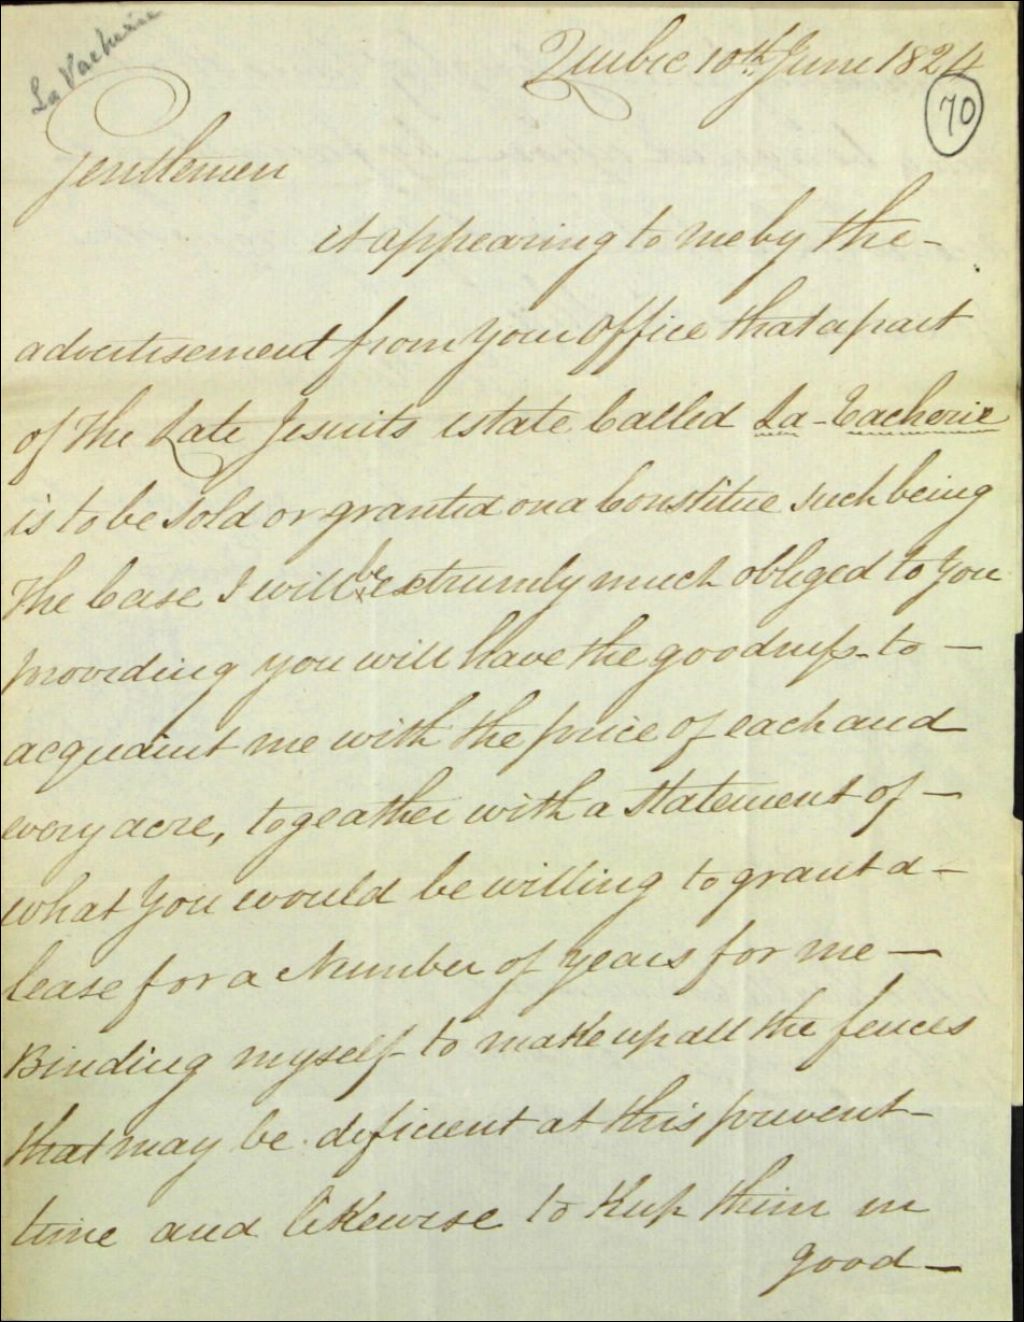 La Vacherie
Quebec 10th June 1824
70
Gentlemen
it appearing to me by the -
advertisement from Your Office that a part
of the Late Jesuits estate Called La-Vacherie
is to be sold or granted on a Constitue such being
the Case I will be extremely much obliged to You
providing you will have the goodness to -
acquaint me with the price of each and
every acre, togeather with a statement of -
what You would be willing to grant a -
lease for a Number of years for me -
Binding myself to make up all the fences
that may be deficient at this present -
time and likewise to keep them in
good -